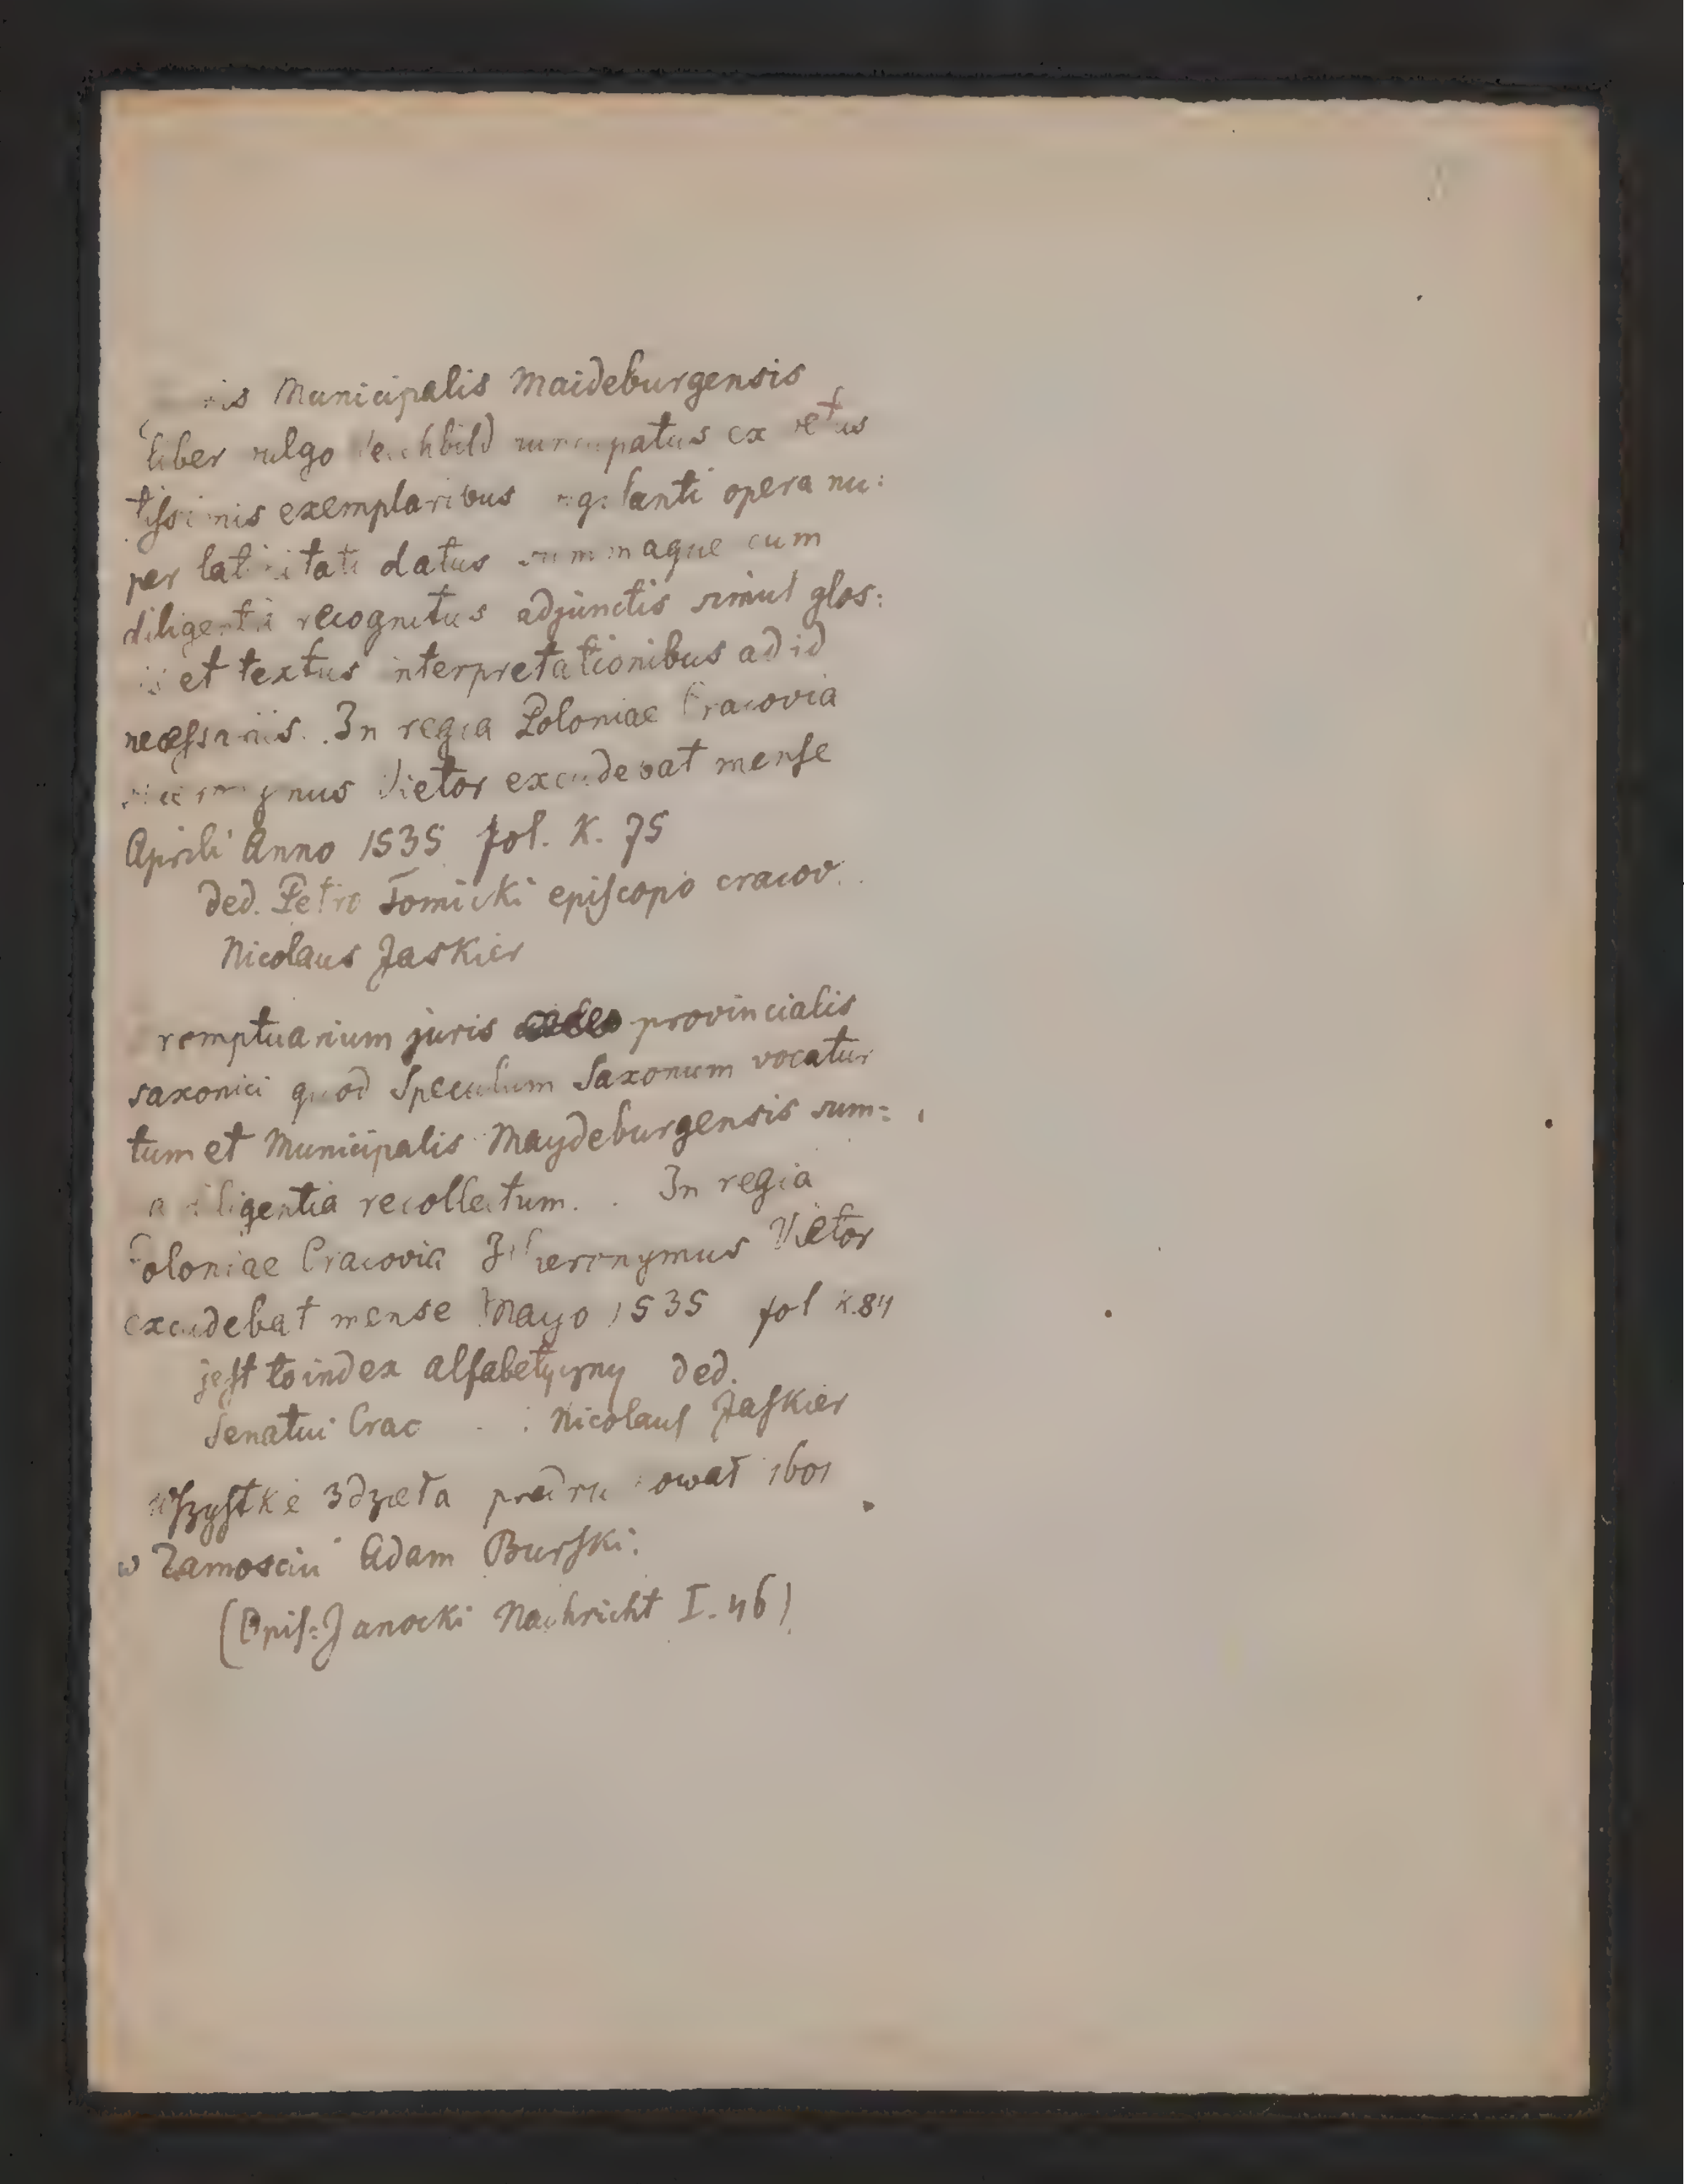 Municipalis Maideburgensis
liber vulgo ex vetus
tissimis exemplaribus opera nu:
per datus summaque cum
diligentia recognitus adjunctis simul glos:
et textus interpretationibus ad id
necessariis. In regia Poloniae Cracovia
Vietor excudebat mense
Aprili Anno 1535 fol. K. 75
ded. Petro Tomicki episcopo cracov.
Nicolaus Jaskier
romptuarium juris provincialis
saxonici quod Speculum Saxonum vocatur
tum et Municipalis Maydeburgensis sum:
diligentia recollectum. In regia
Poloniae Cracovia Hieronymus Vietor
excudebat mense Mayo 1535 fol K.84
jest to index alfabetyczny ded.
Senatui Crac Nicolaus Jaskier
wszystkie 3 dzieła 1601
w Zamosciu Adam Burski.
(Opis: Janocki Nachricht I. 46)